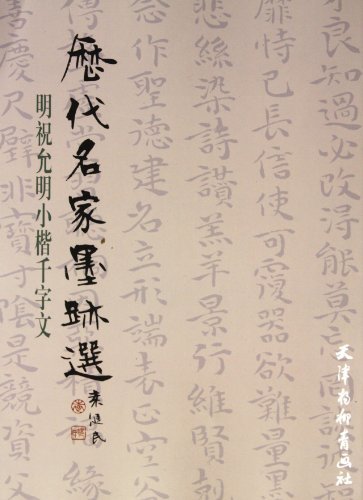 才良知過必改得能莫
靡恃己長信使可覆器欲難量
悲絲染詩讚羔羊景行維賢
念作聖德建名立形端表正空谷
善慶尺璧非寶寸陰是競資父
歷代名家墨跡選
明祝允明小楷千字文
天津楊柳青画社